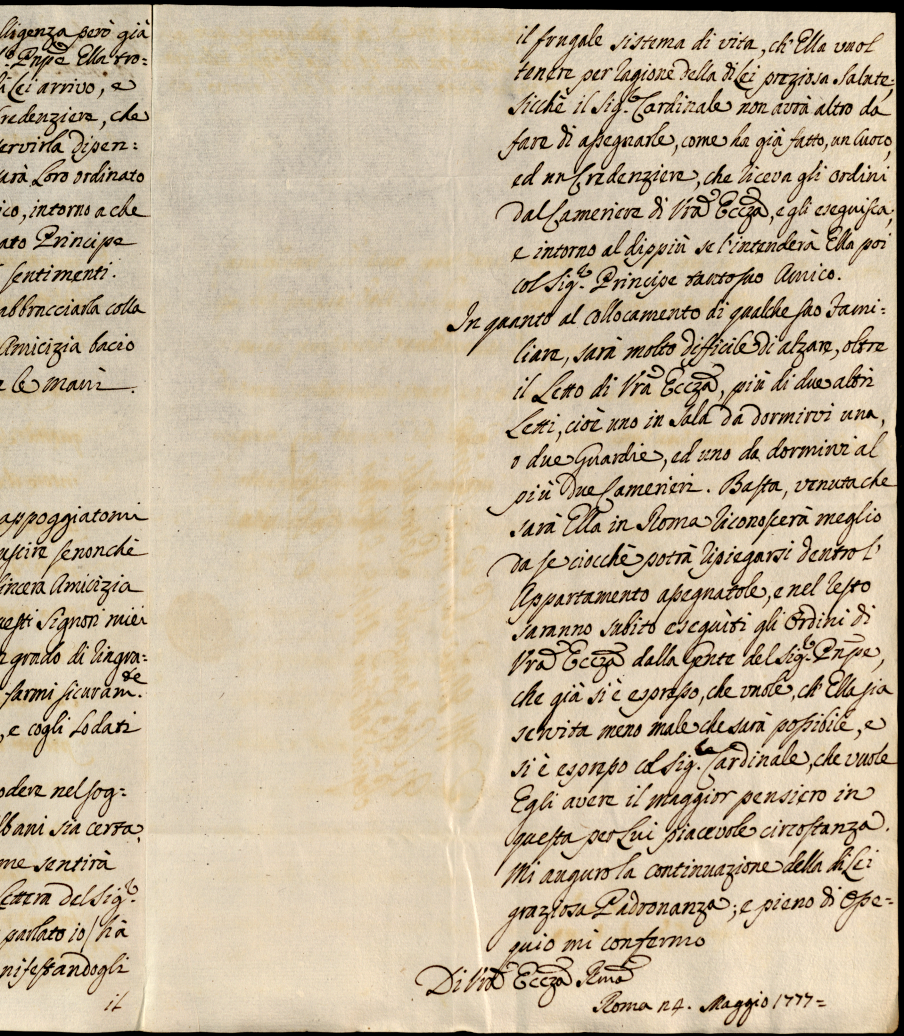 lligenza però già
Pnpe Ella tro:
Lei arrivo, e
redenziere, che
servirla dipen:
arà Loro ordinato
ico, intorno a che
ato Principe
sentimenti.
abbracciarla colla
Amicizia bacio
e le mani.
appoggiatomi
uscire senonchè
sincera Amicizia
uesti Signori miei
grado di ringra:
farmi sicuram.te
, e cogli Lodati
odere nel sog:
lbani sia certa,
me sentirà
Lettera del Sig.r
parlato io / hà
nifestandogli
il
il frugale sistema di vita, ch'Ella vuol
tenere per ragione della di Lei preziosa Salute,
sicchè il Sig.r Cardinale non avrà altro da
fare di assegnarle, come ha già fatto, un Cuoco,
ed un Credenziere, che riceva gli ordini
dal Cameriere di Vra Eccza, e gli eseguisca;
e intorno al dippiù se l'intenderà Ella poi
col Sig.r Principe tanto suo Amico.
In quanto al collocamento di qualche suo Fami:
liare, sarà molto difficile di alzare, oltre
il Letto di Vra Eccza, più di due altri
Letti, cioè uno in Sala da dormirvi una,
o due Guardie, ed uno da dormirvi al
più due Camerieri. Basta, venuta che
sarà Ella in Roma riconoscerà meglio
da se ciocchè potrà ripiegarsi dentro l'
Appartamento assegnatole, e nel resto
saranno subito eseguiti gli Ordini di
Vra Eccza dalla Gente del Sig.r Pnpe,
che già si è espresso, che vuole, ch'Ella sia
servita meno male che sarà possibile, e
si è espresso col Sig.r Cardinale, che vuole
Egli avere il maggior pensiero in
questa per Lui piacevole circostanza.
Mi auguro la continuazione della di Lei
graziosa Padronanza; e pieno di Osse=
quio mi confermo
Di Vra Eccza Rma
Roma 24. Maggio 1777=